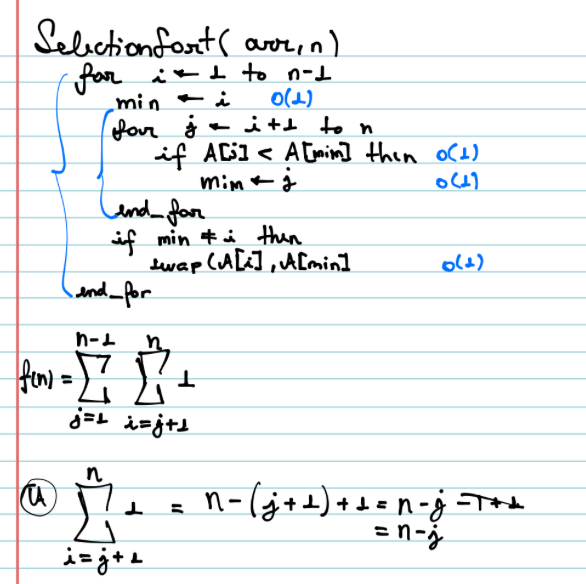 SelectionSort( arr, n)
for i ← 1 to n-1
min ← i O(1)
for j ← i+1 to n
if A[j] < A[min] then O(1)
min ← j O(1)
end_for
if min ≠ i then
swap (A[i], A[min] O(1)
end_for
f(n) = ∑_{j=1}^{n-1} ∑_{i=j+1}^{n} 1
∑_{i=j+1}^{n} 1 = n-(j+1)+1 = n-j -1+1
= n-j